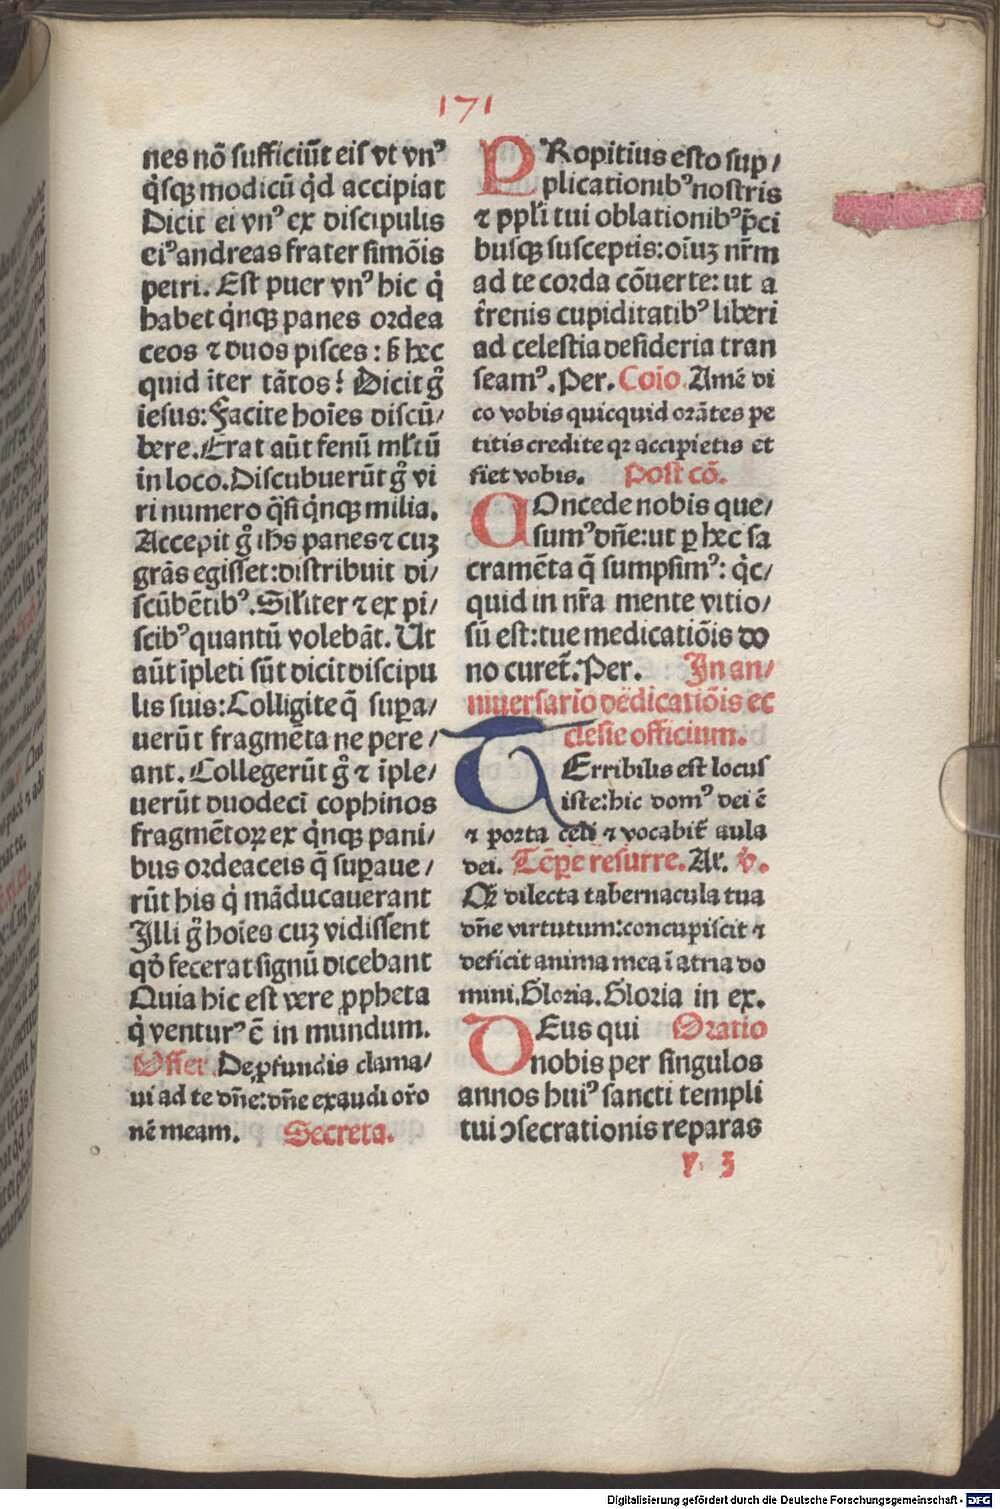 171
nes nõ sufficiũt eis vt vnꝰ
q̇sqꝫ modicũ q̇d accipiat
Dicit ei vnꝰ ex discipulis
eiꝰ andreas frater simõis
petri. Est puer vnꝰ hic q̇
habet q̇nqꝫ panes ordea
ceos ⁊ duos pisces : sꝫ hec
quid īter tātos? Dicit gͦ
iesus: Facite hoīes discū/
bere. Erat aūt fenū mltū
in loco. Discubuerūt gͦ vi
ri numero q̄si q̇nqꝫ milia.
Accepit gͦ ihs panes ⁊ cuꝫ
grās egisset: distribuit di/
scūbētibꝰ. Silīter ⁊ ex pi/
scibꝰ quantū volebāt. Ut
aūt īpleti sūt dicit discipu
lis suis: Colligite q̄ suꝑa/
uerūt fragmēta ne pere/
ant. Collegerūt gͦ ⁊ īple/
uerūt duodecī cophinos
fragmētoꝝ ex q̇nqꝫ pani/
bus ordeaceis q̄ suꝑaue/
rūt his q̇ māducauerant
Illi gͦ hoīes cuꝫ vidissent
qd̄ fecerat signū dicebant
Quia hic est vere ꝓpheta
q̇ venturꝰ ē in mundum.
Offer. De ꝓfundis clama/
ui ad te dn̄e: dn̄e exaudi oro̅
nē meam. Secreta.
PRopitius esto sup/
plicationibꝰ nostris
⁊ ppl̄i tui oblationibꝰ p̄ci
busqꝫ susceptis: oīuꝫ nr̄m
ad te corda cōuerte: ut a
t̄renis cupiditatibꝰ liberi
ad celestia desideria tran
seamꝰ. Per. Coīo. Amē di
co vobis quicquid orātes pe
titis credite qꝛ accipietis et
fiet vobis. Post cō.
COncede nobis que/
sumꝰ dn̄e: ut ꝑ hec sa
cramēta q̄ sumpsimꝰ: q̇c/
quid in nr̄a mente vitio/
sū est: tue medicatiōis do
no curet̄. Per. In an/
niuersario dedicatiōis ec
clesie officium.
TErribilis est locus
iste: hic domꝰ dei ē
⁊ porta celi ⁊ vocabit̄ aula
dei. Tēpe resurre. Ar. v̇.
Q̄ dilecta tabernacula tua
dn̄e virtutum: concupiscit ⁊
deficit anima mea ī atria do
mini. Gloria. Gloria in ex.
DEus qui Oratio
nobis per singulos
annos huiꝰ sancti templi
tui ↄsecrationis reparas
y 3
Digitalisierung gefördert durch die Deutsche Forschungsgemeinschaft - DFG